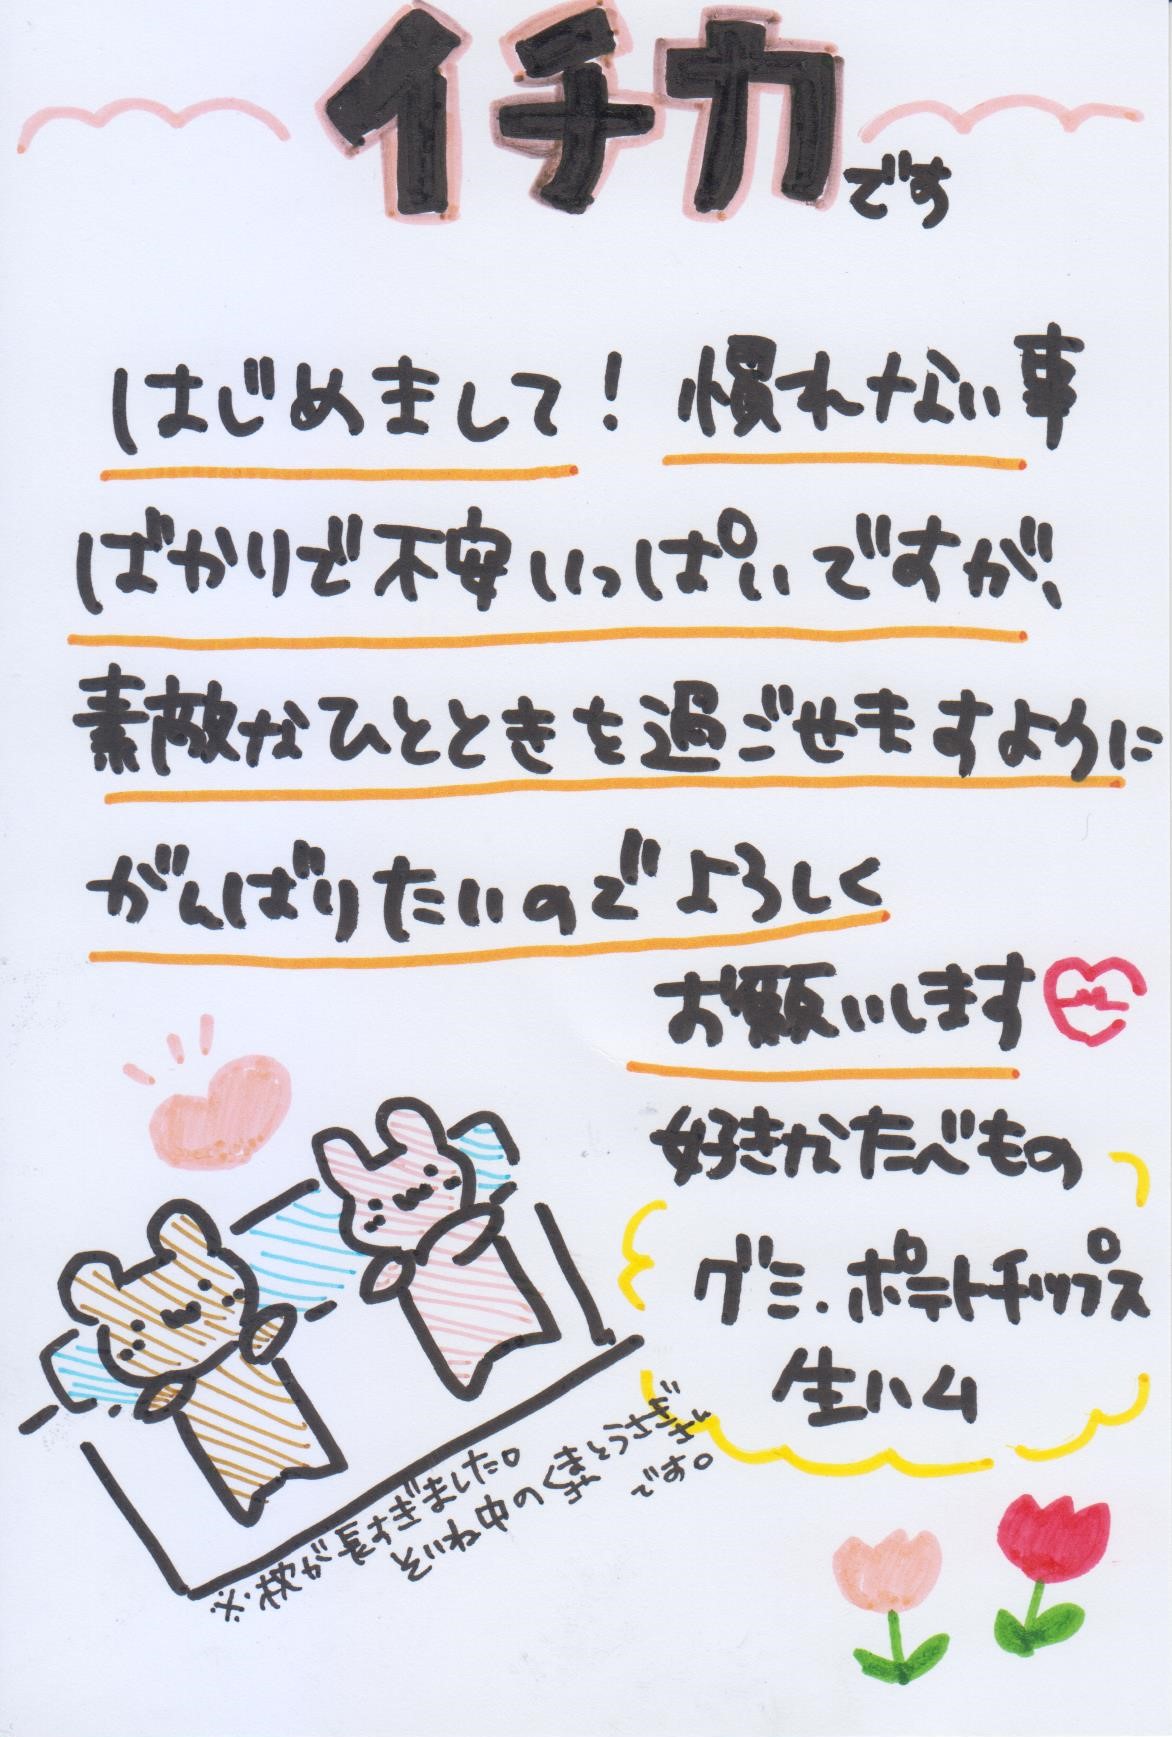 イチカです
はじめまして！慣れない事
ばかりで不安いっぱいですが、
素敵なひとときを過ごせますように
がんばりたいのでよろしく
お願いします
好きなたべもの
グミ．ポテトチップス
生ハム
※枕が長すぎました。
そいね中のくまとうさぎ
です。